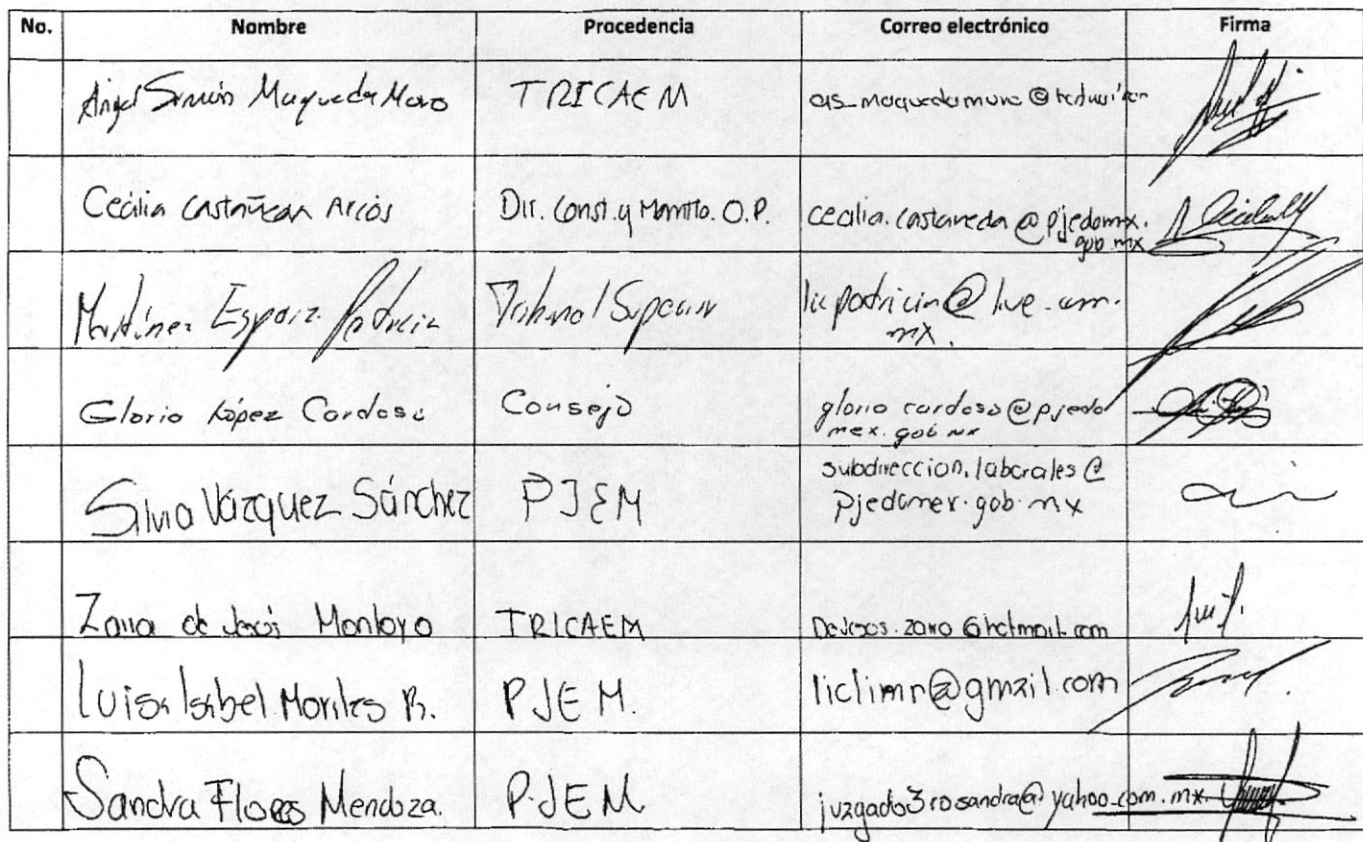 No. Nombre Procedencia Correo electrónico Firma
Angel Simón Maqueda Moro TRICAEM @
Cecilia Castañeda Arcos Dir. Const. y Mantto. O.P. cecilia.castaneda@pjedomx.
gob.mx
Martínez Esparz. Patricia Tribunal Superior licpatricia@live.com.
mx.
Gloria López Cardoso Consejo gloria cardoso@pjedo
mex.gob.mx
subdireccion.laborales@
Silvia Vázquez Sánchez PJEM pjedomex.gob.mx
de Jesús Montoyo TRICAEM @hotmail.com
Luisa Isabel Morales R. PJEM. liclimr@gmail.com
Sandra Flores Mendoza. P.JEM juzgado3rosandra@yahoo.com.mx.